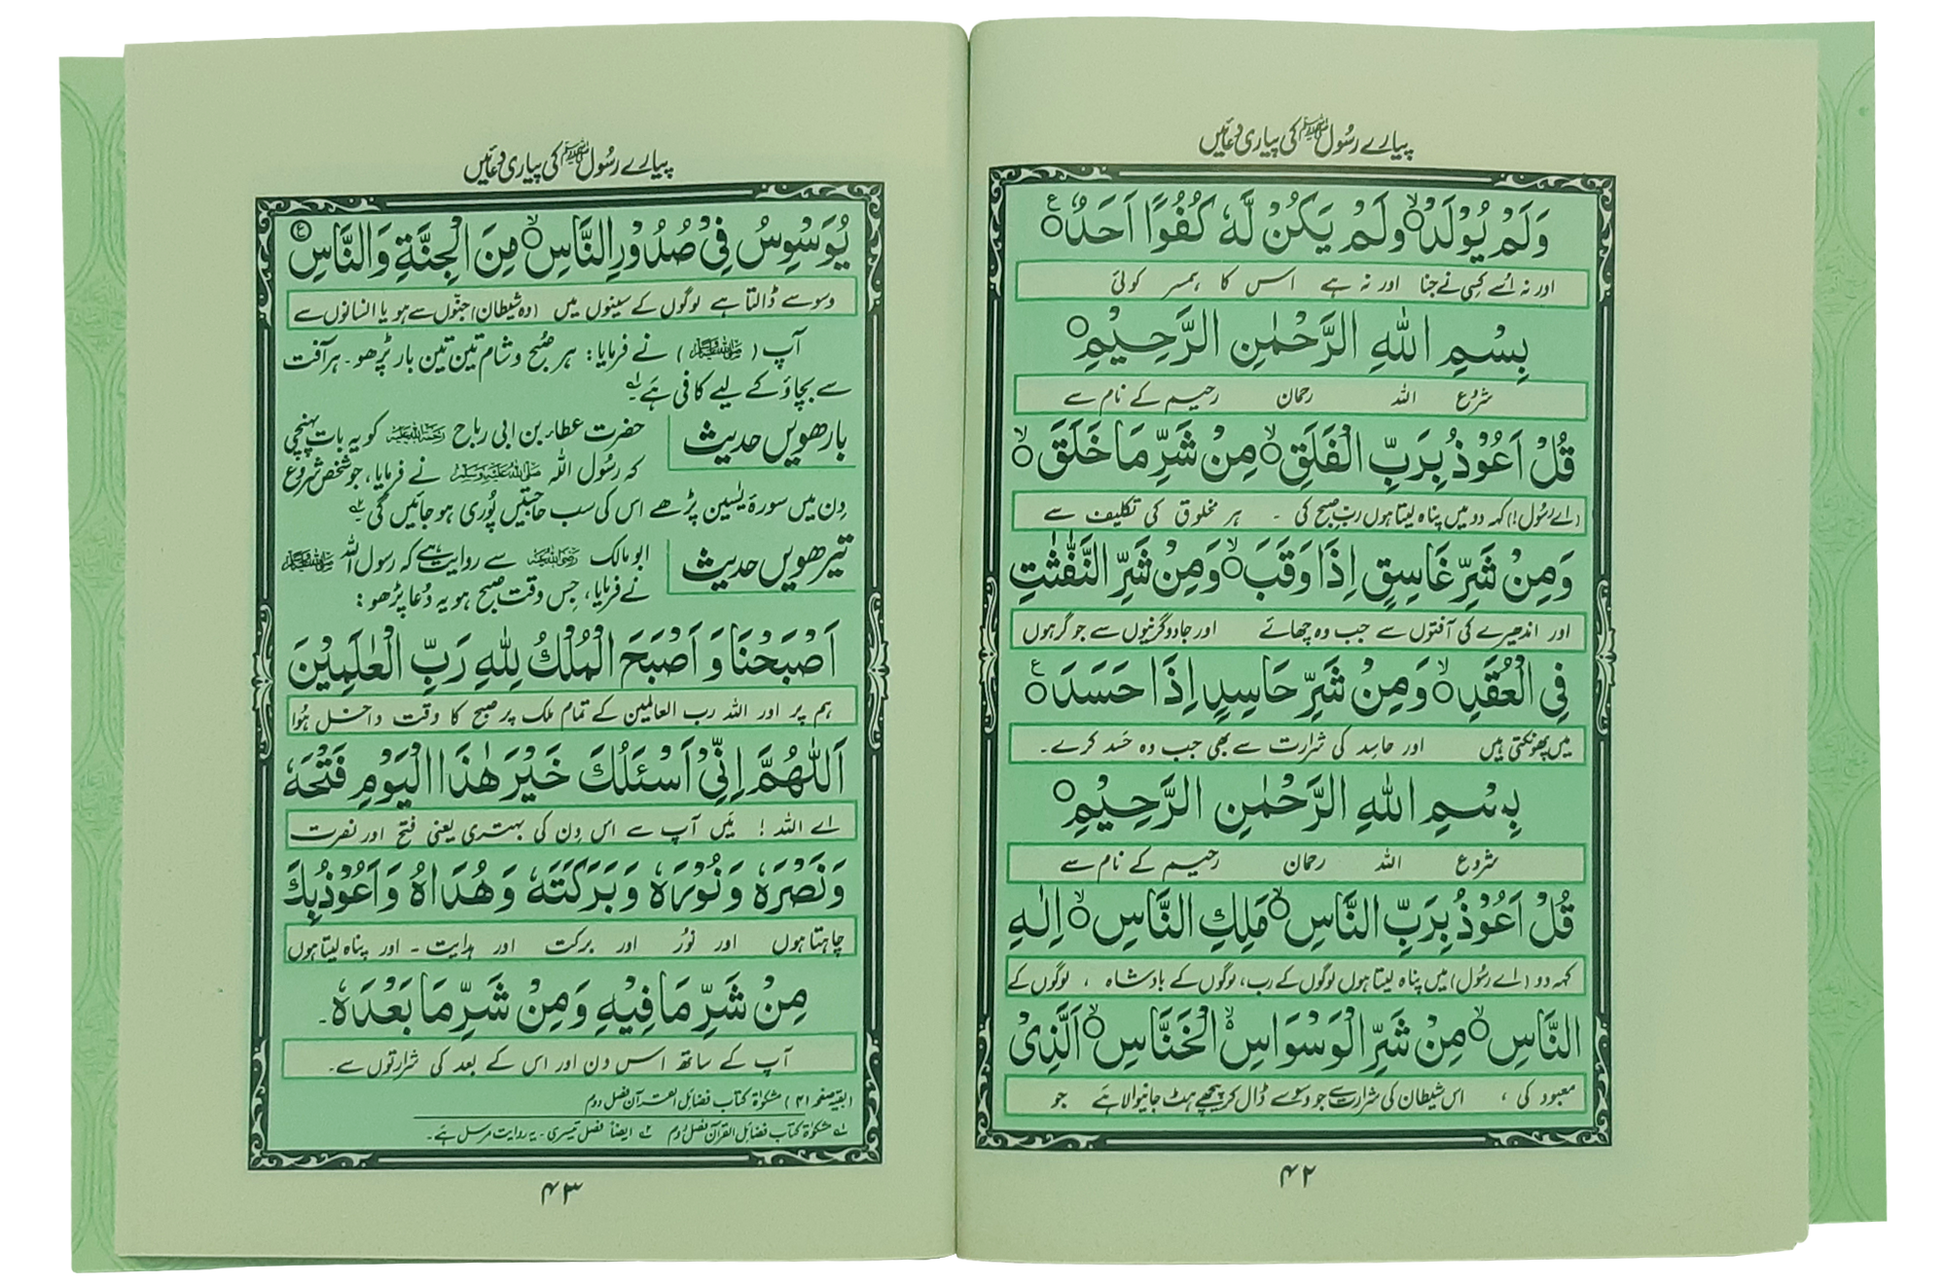 پیارے رسُول ﷺ کی پیاری دُعائیں
وَلَمْ يُوْلَدْ ۙ وَلَمْ يَكُنْ لَّهٗ كُفُوًا اَحَدٌ ۧ
اور نہ اُسے کسی نے جنا اور نہ ہے اس کا ہمسر کوئی
بِسْمِ اللهِ الرَّحْمٰنِ الرَّحِيْمِ ۝
شروع اللہ رحمان رحیم کے نام سے
قُلْ اَعُوْذُ بِرَبِّ الْفَلَقِ ۙ مِنْ شَرِّ مَا خَلَقَ ۙ
(اے رسُول!) کہہ دو میں پناہ لیتا ہوں ربِ صبح کی ۔ ہر مخلوق کی تکلیف سے
وَمِنْ شَرِّ غَاسِقٍ اِذَا وَقَبَ ۙ وَمِنْ شَرِّ النَّفّٰثٰتِ
اور اندھیرے کی آفتوں سے جب وہ چھائے اور جادوگرنیوں سے جو گرہوں
فِي الْعُقَدِ ۙ وَمِنْ شَرِّ حَاسِدٍ اِذَا حَسَدَ ۧ
میں پھونکتی ہیں اور حاسِد کی شرارت سے بھی جب وہ حَسد کرے۔
بِسْمِ اللهِ الرَّحْمٰنِ الرَّحِيْمِ ۝
شروع اللہ رحمان رحیم کے نام سے
قُلْ اَعُوْذُ بِرَبِّ النَّاسِ ۙ مَلِكِ النَّاسِ ۙ اِلٰهِ
کہہ دو (اے رسُول) میں پناہ لیتا ہوں لوگوں کے رب، لوگوں کے بادشاہ ، لوگوں کے
النَّاسِ ۙ مِنْ شَرِّ الْوَسْوَاسِ ۙ الْخَنَّاسِ ۙ الَّذِيْ
معبود کی ، اس شیطان کی شرارت سے جو وسوسے ڈال کر پیچھے ہٹ جانیوالا ہے جو
۴۲
پیارے رسُول ﷺ کی پیاری دُعائیں
يُوَسْوِسُ فِيْ صُدُوْرِ النَّاسِ ۙ مِنَ الْجِنَّةِ وَالنَّاسِ ۧ
وسوسے ڈالتا ہے لوگوں کے سینوں میں (وہ شیطان) جنّوں سے ہو یا انسانوں سے
آپ (ﷺ) نے فرمایا: ہر صبح و شام تین تین بار پڑھو۔ ہر آفت
سے بچاؤ کے لیے کافی ہَے۔ لے
بارھویں حدیث حضرت عطاء بن ابی رباح رحمۃ اللہ علیہ کو یہ بات پہنچی
کہ رسُول اللہ صلی اللہ علیہ وسلم نے فرمایا، جو شخص شروع
دِن میں سورۂ یٰسین پڑھے اس کی سب حاجتیں پُوری ہو جائیں گی۔
تیرھویں حدیث ابو مالک رضی اللہ عنہ سے روایت ہے کہ رسول اللہ ﷺ
نے فرمایا، جس وقت صبح ہو یہ دُعا پڑھو:
اَصْبَحْنَا وَ اَصْبَحَ الْمُلْكُ لِلّٰهِ رَبِّ الْعٰلَمِيْنَ
ہم پر اور اللہ رب العالمین کے تمام ملک پر صبح کا وقت داخل ہُوا
اَللّٰهُمَّ اِنِّيْ اَسْئَلُكَ خَيْرَ هٰذَا الْيَوْمِ فَتْحَهٗ
اے اللہ ! میَں آپ سے اس دِن کی بہتری یعنی فتح اور نصرت
وَنَصْرَهٗ وَنُوْرَهٗ وَبَرَكَتَهٗ وَهُدَاهُ وَاَعُوْذُ بِكَ
چاہتا ہوں اور نُور اور برکت اور ہدایت ۔ اور پناہ لیتا ہوں
مِنْ شَرِّ مَا فِيْهِ وَمِنْ شَرِّ مَا بَعْدَهٗ۔
آپ کے ساتھ اس دن اور اس کے بعد کی شرارتوں سے۔
(بقیہ صفحہ ۴۱) مشکوٰۃ کتاب فضائل القرآن فصل دوم
لے مشکوٰۃ کتاب فضائل القرآن فصل دوم ۲ے ایضاً فصل تیسری۔ یہ روایت مرسل ہے۔
۴۳